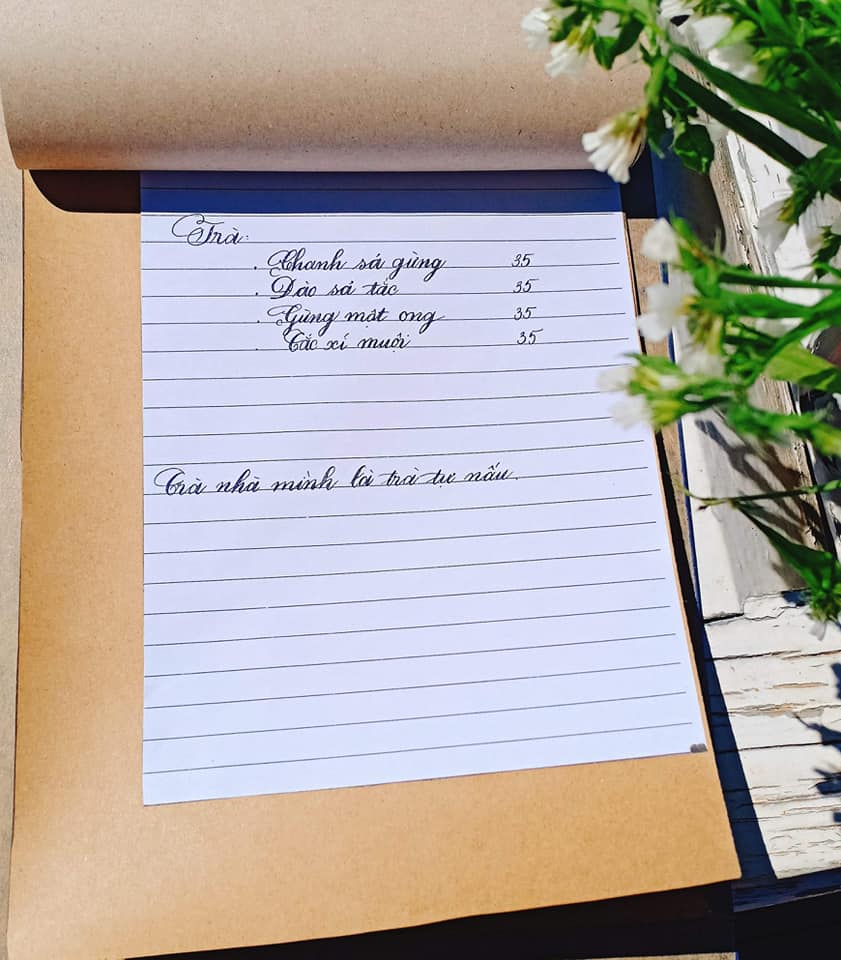 Trà:
. Chanh sả gừng 35
. Đào sả tắc 35
. Gừng mật ong 35
. Tắc xí muội 35
Trà nhà mình là trà tự nấu.